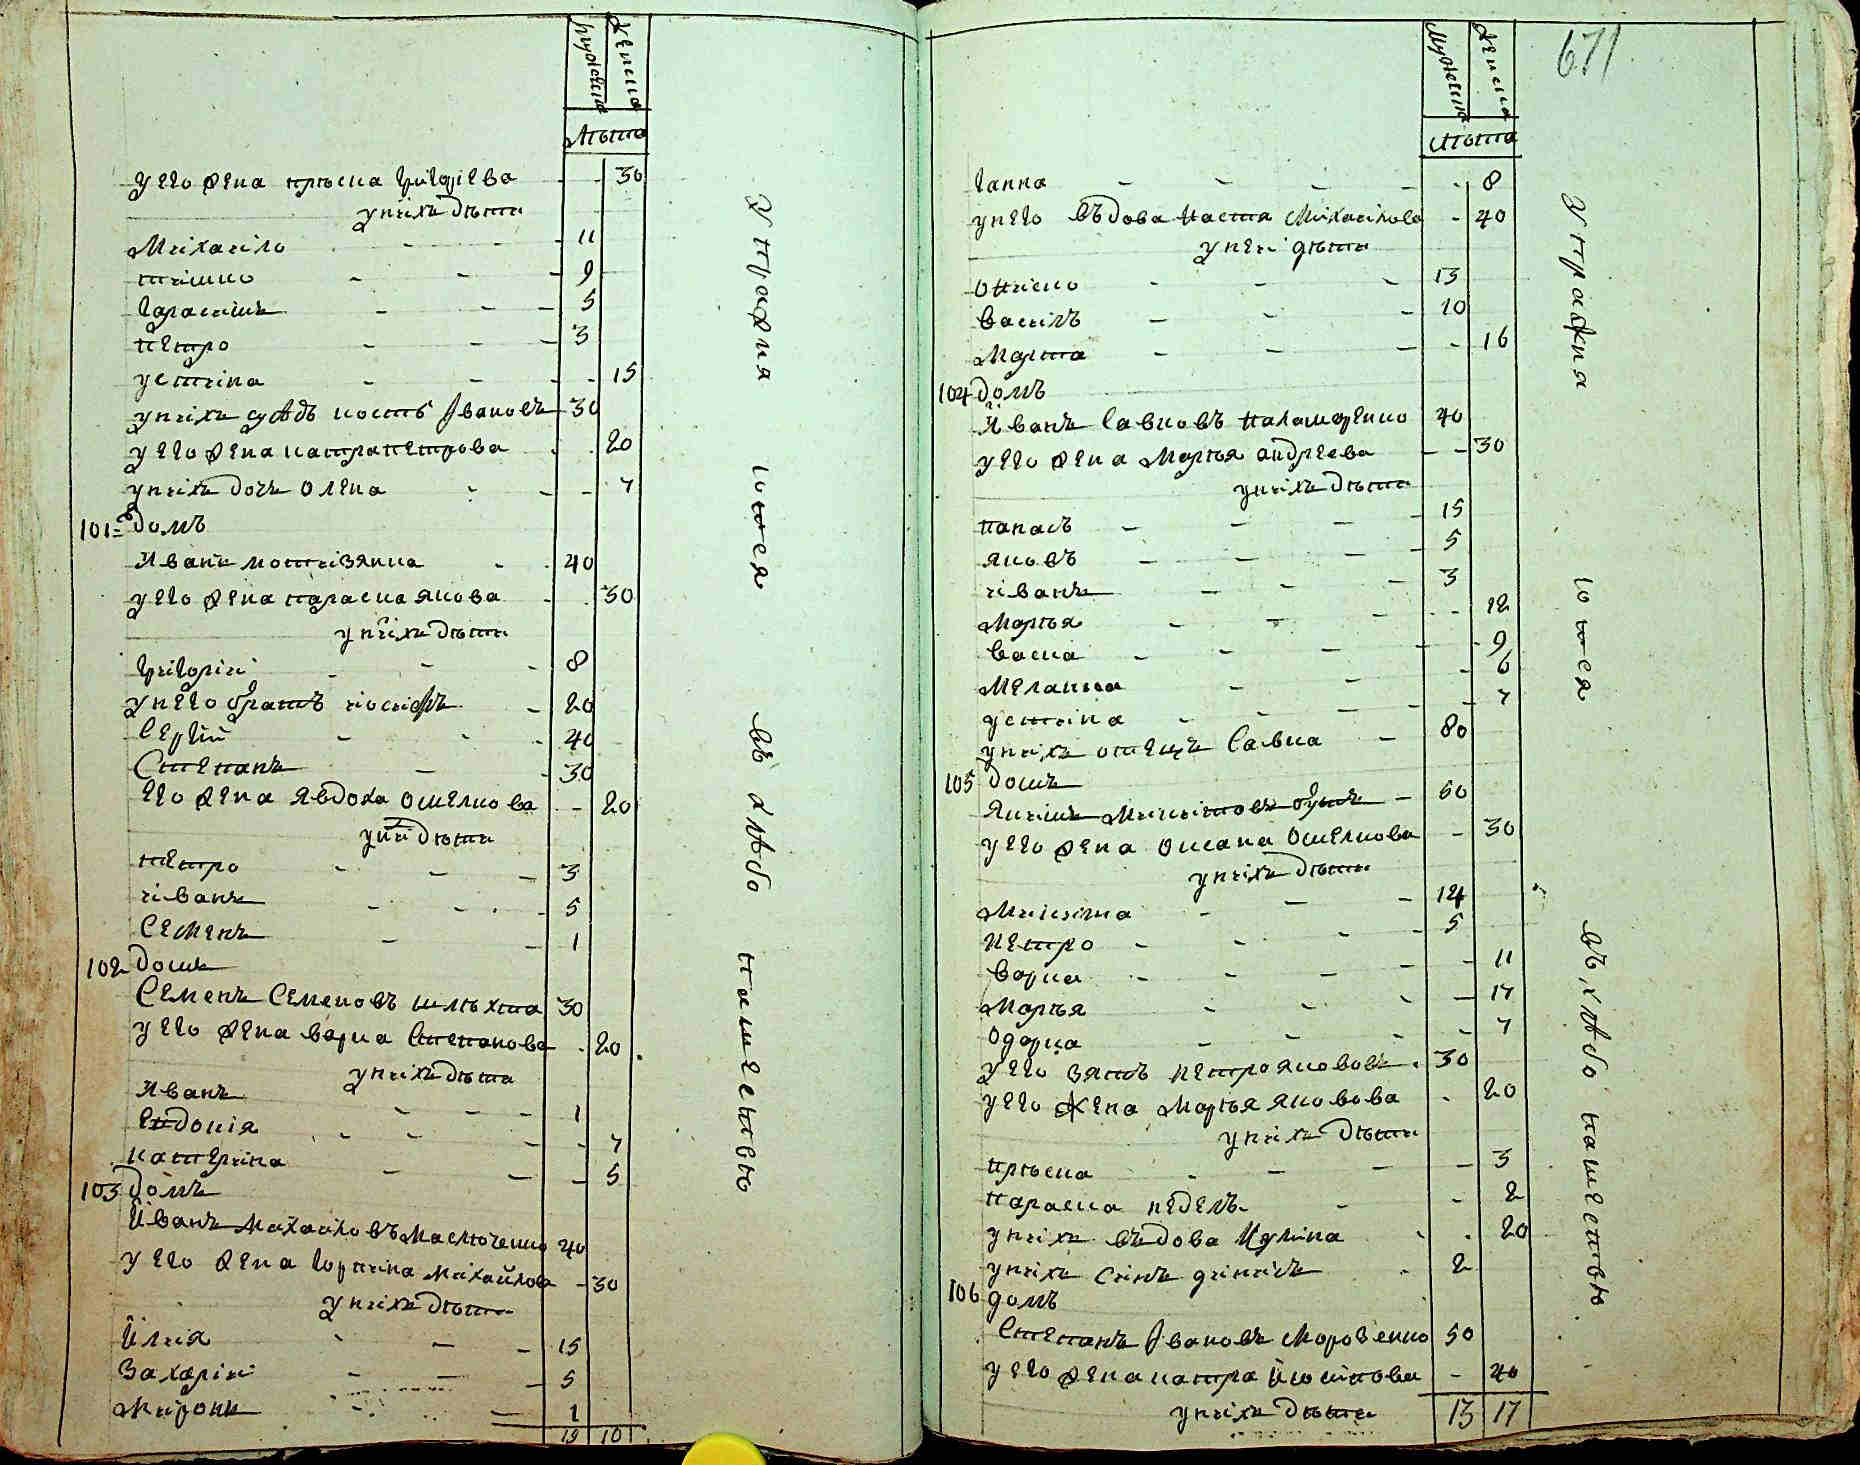 Мужеска Женска
Лѣта
у его жена прѣска григориева 30
у нихъ дѣти
Михаило 11
тишко 9
гарасимъ 5
петро 3
устина 15
у нихъ сусѣдъ костѣ Ивановъ 30
у его жена катра петрова 20
у нихъ дочь олена 7
101 домъ
Иванъ
у его жена параска якова 30
у нихъ дѣти
григорий 8
у него братъ иосифъ 20
Сергій 40
Степанъ 30
его жена явдоха ошелкова 20
у ни дѣти
петро 3
иванъ 5
Семенъ 1
102 домъ
Семенъ Семеновъ шляхта 30
у его жена варка Степанова 20
у нихъ дѣти
Иванъ 1
Евдокія 7
катерина 5
103 домъ
Иванъ Михаиловъ Маслюченко 40
у его жена горпина михайлова 30
у нихъ дѣти
Илия 15
Захарій 5
Миронъ 1
19 10
У праждня
ются
въ хлѣбо
пашенствю
671
Мужеска Женска
Лѣта
ганна 8
у него въдова настя Михаилова 40
у неи дѣти
ониско 13
василъ 10
Марта 16
104 домъ
Иванъ Савковъ паламаренко 40
у его жена Марья андреева 30
у нихъ дѣти
панасъ 15
яковъ 5
иванъ 3
Марья 12
васка 9
Меланка 6
устина 7
у нихъ отецъ Савка 80
105 домъ
Якимъ Микитовъ 50
у его жена оксана ошелкова 30
у нихъ дѣти
Микита 14
петро 5
варка 11
Марья 17
одарка 7
у его зять петро якововъ 30
у его жена Марья яковова 20
у нихъ дѣти
прѣска 3
параска недель 2
у нихъ въдова Кулина 20
у нихъ синъ денисъ 2
106 домъ
Степанъ Ивановъ Морозенко 50
у его жена катра Иосипова 40
у нихъ дѣти 13 17
У праждня
ются
въ хлѣбо
пашенствю